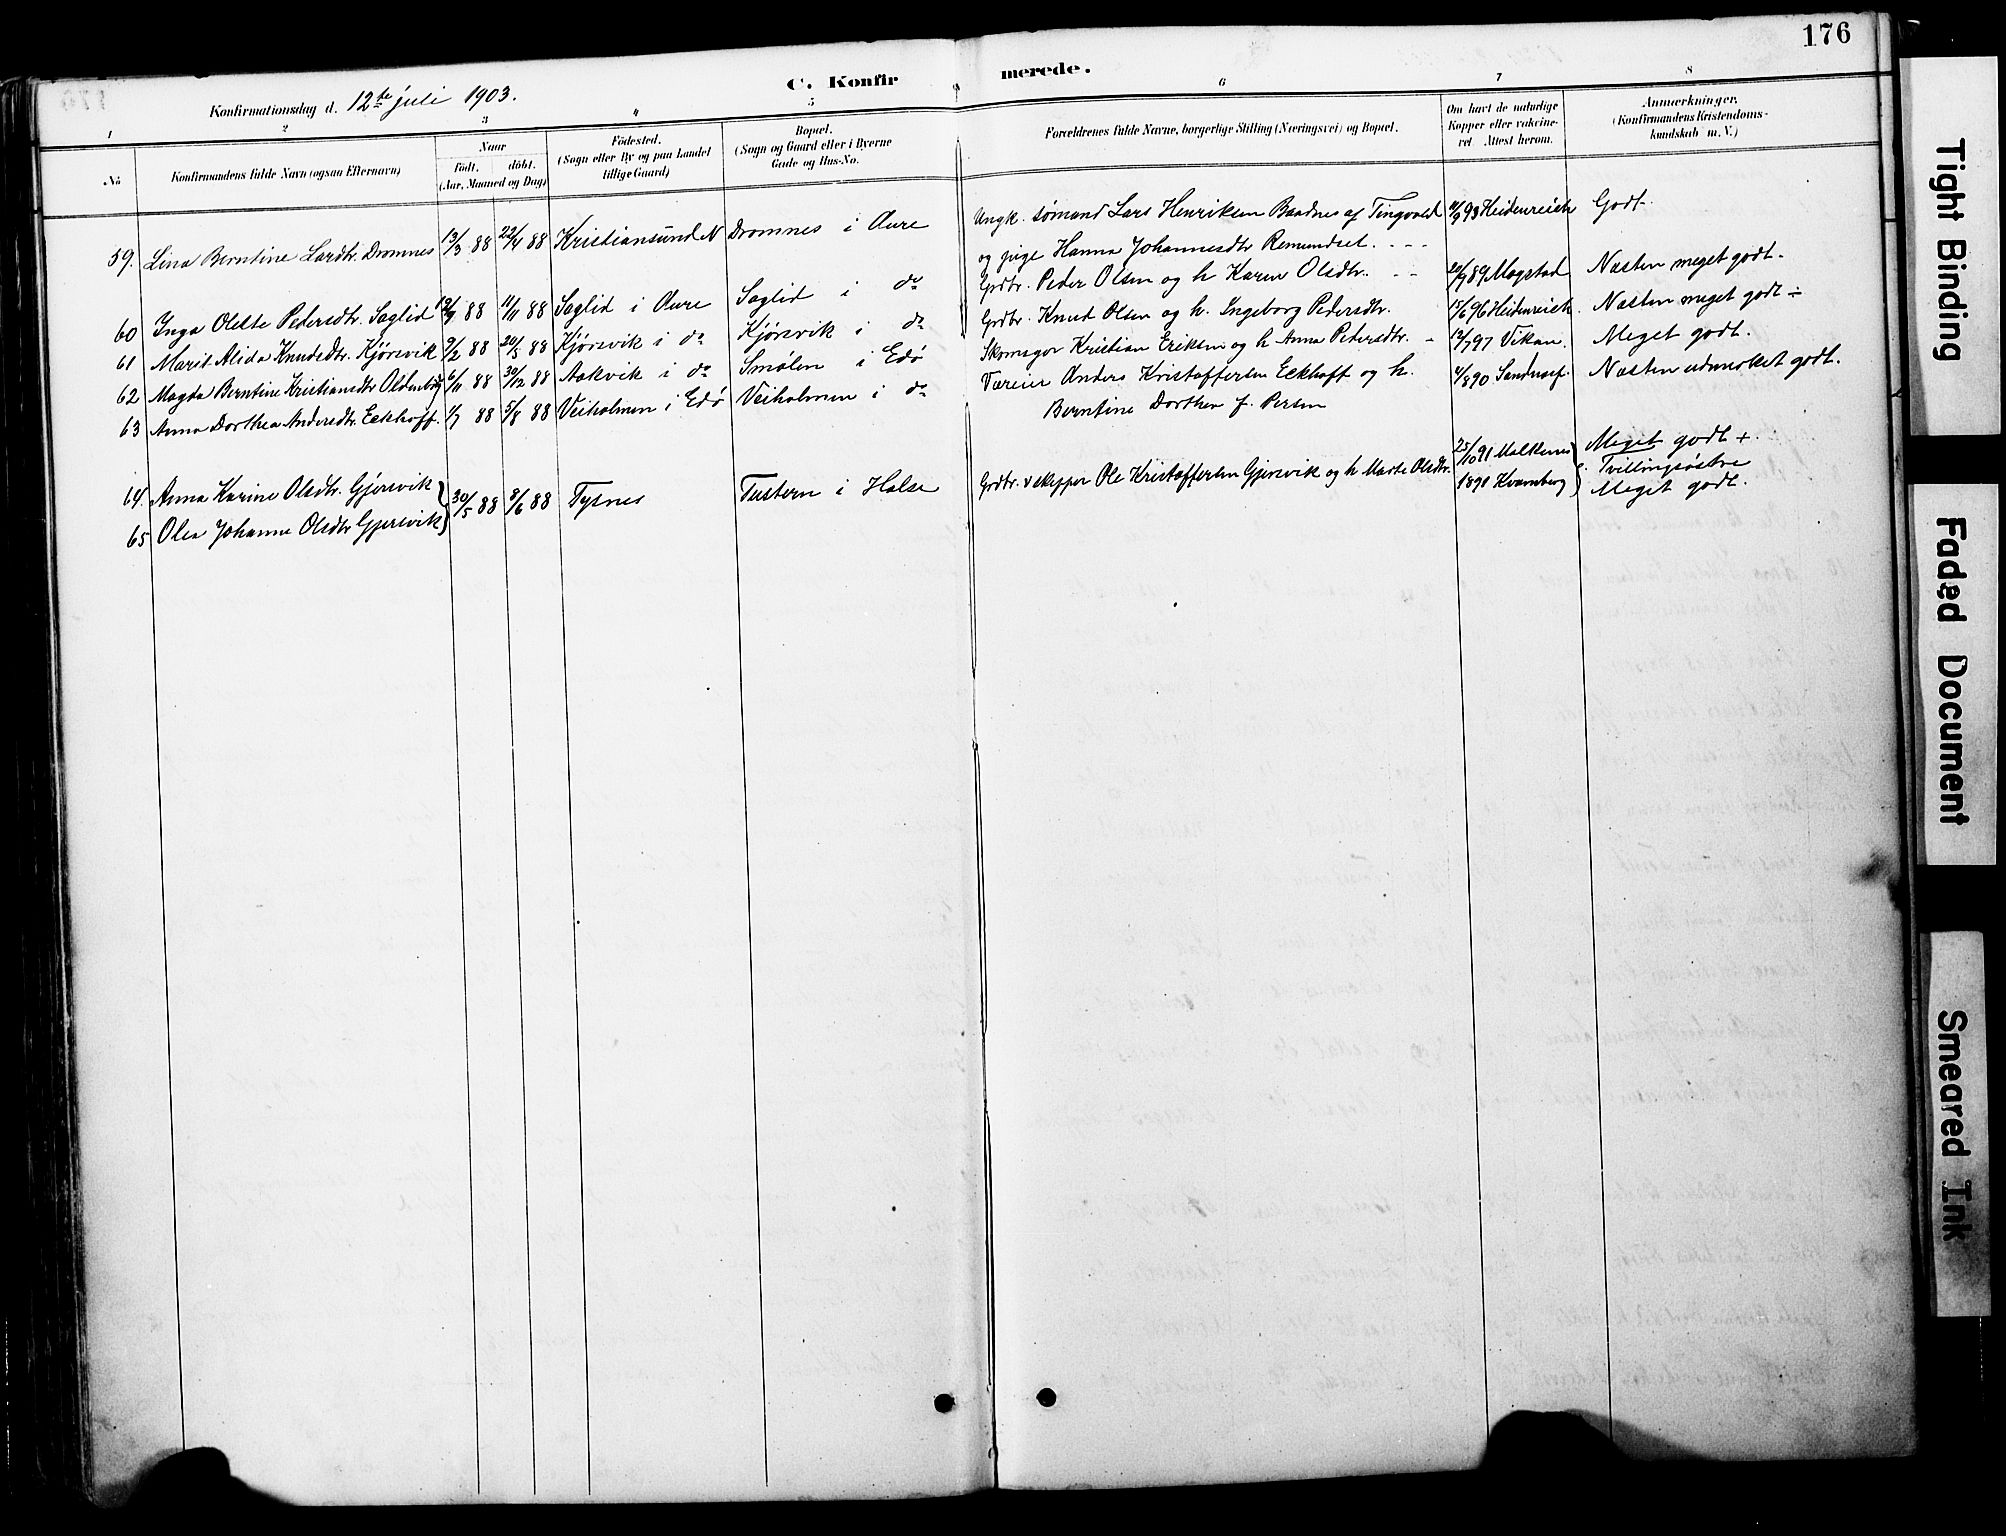 176
C. Konfirmerede.
Konfirmationsdag d. 12te juli 1903.
1 2 3 4 5 6 7 8
No
Konfirmandens fulde Navn (ogsaa Efternavn)
Naar
Födt. döbt.
(Aar, Maaned og Dag)
Födested.
(Sogn eller By og paa Landet
tillige Gaard)
Bopæl.
(Sogn og Gaard eller i Byerne
Gade og Hus-No.
Forældrenes fulde Navne, borgerlige Stilling (Næringsvei) og Bopæl.
Om havt de naturlige
Kopper eller vakcine-
ret Attest herom.
Anmærkninger.
(Konfirmandens Kristendoms-
kundskab m. V.)
59. Lina Berntine Larsdtr. Dromnes 13/3 88 22/4 88 Kristiansund N Dromnes i Aure Ungk. sømand Lars Henriksen Baadnes af Tingvold 93 Heidenreich Godt.
og pige Hanna Johannesdtr Remundset. - - -
60 Inga Oleste Pedersdtr. Saglid 88 11/11 88 Saglid i Aure Saglid i do Grdbr. Peder Olsen og h Karen Olsdtr. - - 89 Mogstad Næsten meget godt.
61 Marit Alida Knudsdtr. Kjørsvik 9/2 88 20/5 88 Kjørsvik i do Kjørsvik i do Grdbr. Knud Olsen og h. Ingeborg Pedersdtr. 15/6 96 Heidenreich. Næsten meget godt ÷
62 Magda Berntine Kristiansdtr Oldenborg 6/11 88 30/12 88 Aakvik i do Smølen i Edø Skomager Kristian Eriksen og h Anna Pedersdtr. - 12/7 97 Vikan. Meget godt.
63 Anna Dorthea Andersdtr. Eckhoff. 1/7 88 5/8 88 Veiholmen i Edø Veiholmen i do Væreier Anders Kristoffersen Eckhoff og h. 4/8 90 Næsten udmerket godt.
Berntine Dorthea f. Persen
64. Anna Karine Olsdtr. Gjersvik 30/5 88 8/6 88 Tysnes Tustern i Halse Grdbr. & skipper Ole Kristoffersen Gjersvik og h Marte Olsdtr. 25/10 91 Meget godt +.
Tvillingsøstre
65 Olea Johanne Olsdtr Gjersvik 1891 Kvarnberg Meget godt.
Tight Binding
Faded Document
Smeared Ink